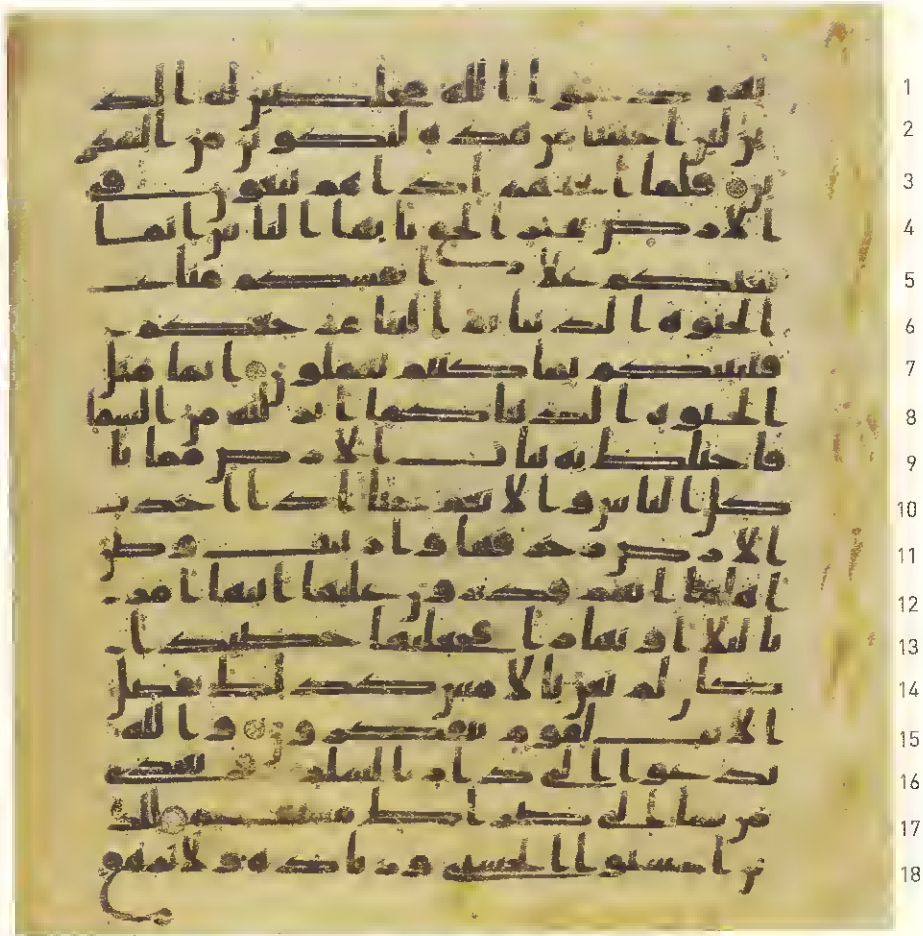 1 بهم دعوا الله مخلصين له الد
2 ين لين انجيتنا من هذه لنكونن من الشكر
3 ين فلما انجيهم اذا هم يبغون في
4 الارض بغير الحق يايها الناس انما
5 بغيكم على انفسكم متاع
6 الحيوه الدنيا ثم الينا مرجعكم
7 فننبيكم بما كنتم تعملون انما مثل
8 الحيوه الدنيا كما انزلنه من السما
9 فاختلط به نبات الارض مما يا
10 كل الناس والانعم حتى اذا اخذت
11 الارض زخرفها وازينت وظن
12 اهلها انهم قدرون عليها اتيها امر
13 نا ليلا او نهارا فجعلنها حصيدا
14 كان لم تغن بالامس كذلك نفصل
15 الايت لقوم يتفكرون والله
16 يدعوا الى دار السلم ويهدي
17 من يشا الى صرط مستقيم للذ
18 ين احسنوا الحسنى وزياده ولا يرهق